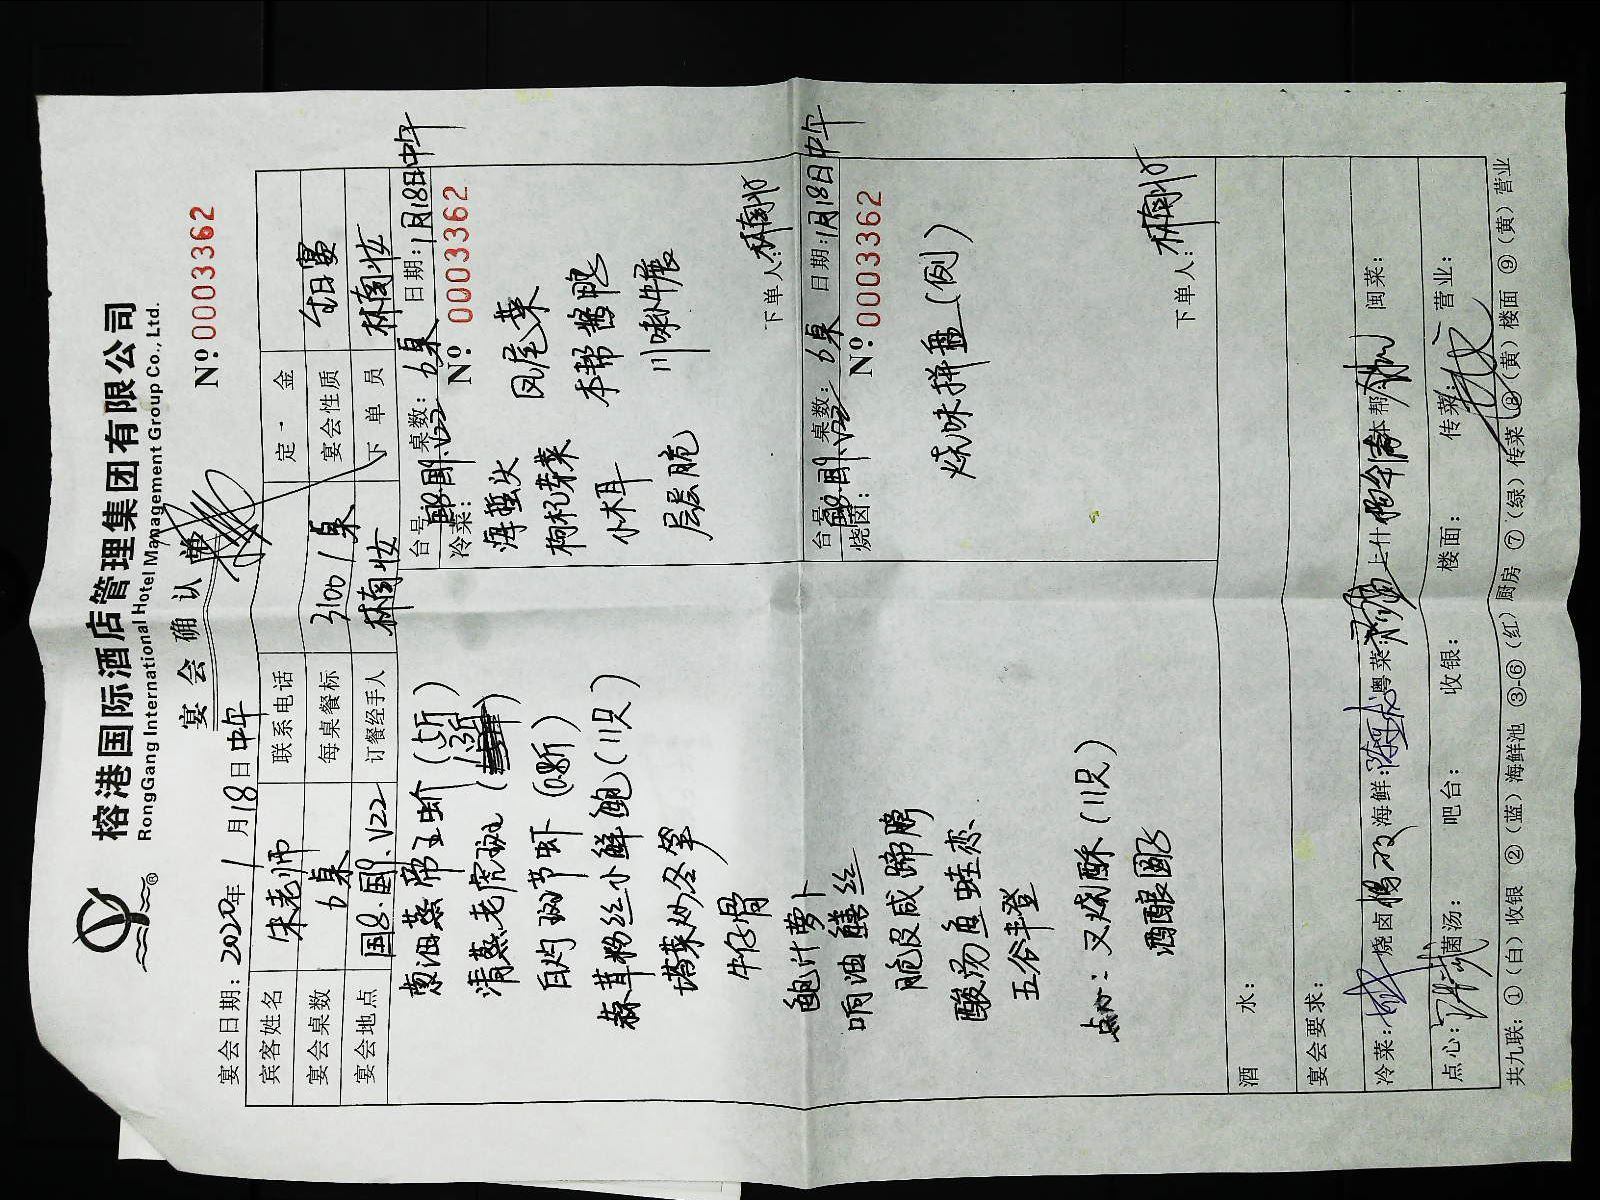 榕港国际酒店管理集团有限公司
RongGang International Hotel Management Group Co., Ltd.
宴会确认单
№ 0003362
宴会日期: 2020年 1月18日 中午
宾客姓名 宋老师 联系电话 定 金
宴会桌数 6桌 每桌餐标 3100/桌 宴会性质
宴会地点 国8.国9.V22 订餐经手人 林南妆 下单员 林南妆
葱油蒸帝王蚧(5斤)
清蒸老虎斑
白灼斑节虾(0.8斤)
蒜茸粉丝小鲜鲍(11只)
塔菜炒冬笋
牛仔骨
鲍汁萝卜
响油鳝丝
脆皮咸蹄髈
酸汤鱼蛙恋
五谷丰登
点心: 叉烧酥(11只)
酒酿圆子
台号: 国8.国9.V22 桌数: 6桌 日期: 1月18日中午
冷菜: № 0003362
海蜇头 凤尾菜
枸杞芽菜 本帮酱鸭
小木耳
层层脆
下单人: 林南妆
台号: 国8.国9.V22 桌数: 6桌 日期: 1月18日中午
烧卤: № 0003362
烧味拼盘(例)
下单人: 林南妆
酒 水:
宴会要求:
冷菜: 烧卤: 海鲜: 粤菜: 上什: 本帮: 闽菜:
点心: 菌汤: 吧台: 收银: 楼面: 传菜: 营业:
共九联: ①(白)收银 ②(蓝)海鲜池 ③-⑥(红)厨房 ⑦(绿)传菜 ⑧(黄)楼面 ⑨(黄)营业